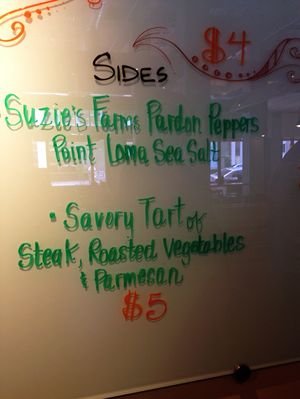 $4
SIDES
Suzie's Farms Pardon Peppers
Point Loma Sea Salt
• Savory Tart of
Steak, Roasted Vegetables
& Parmesan
$5